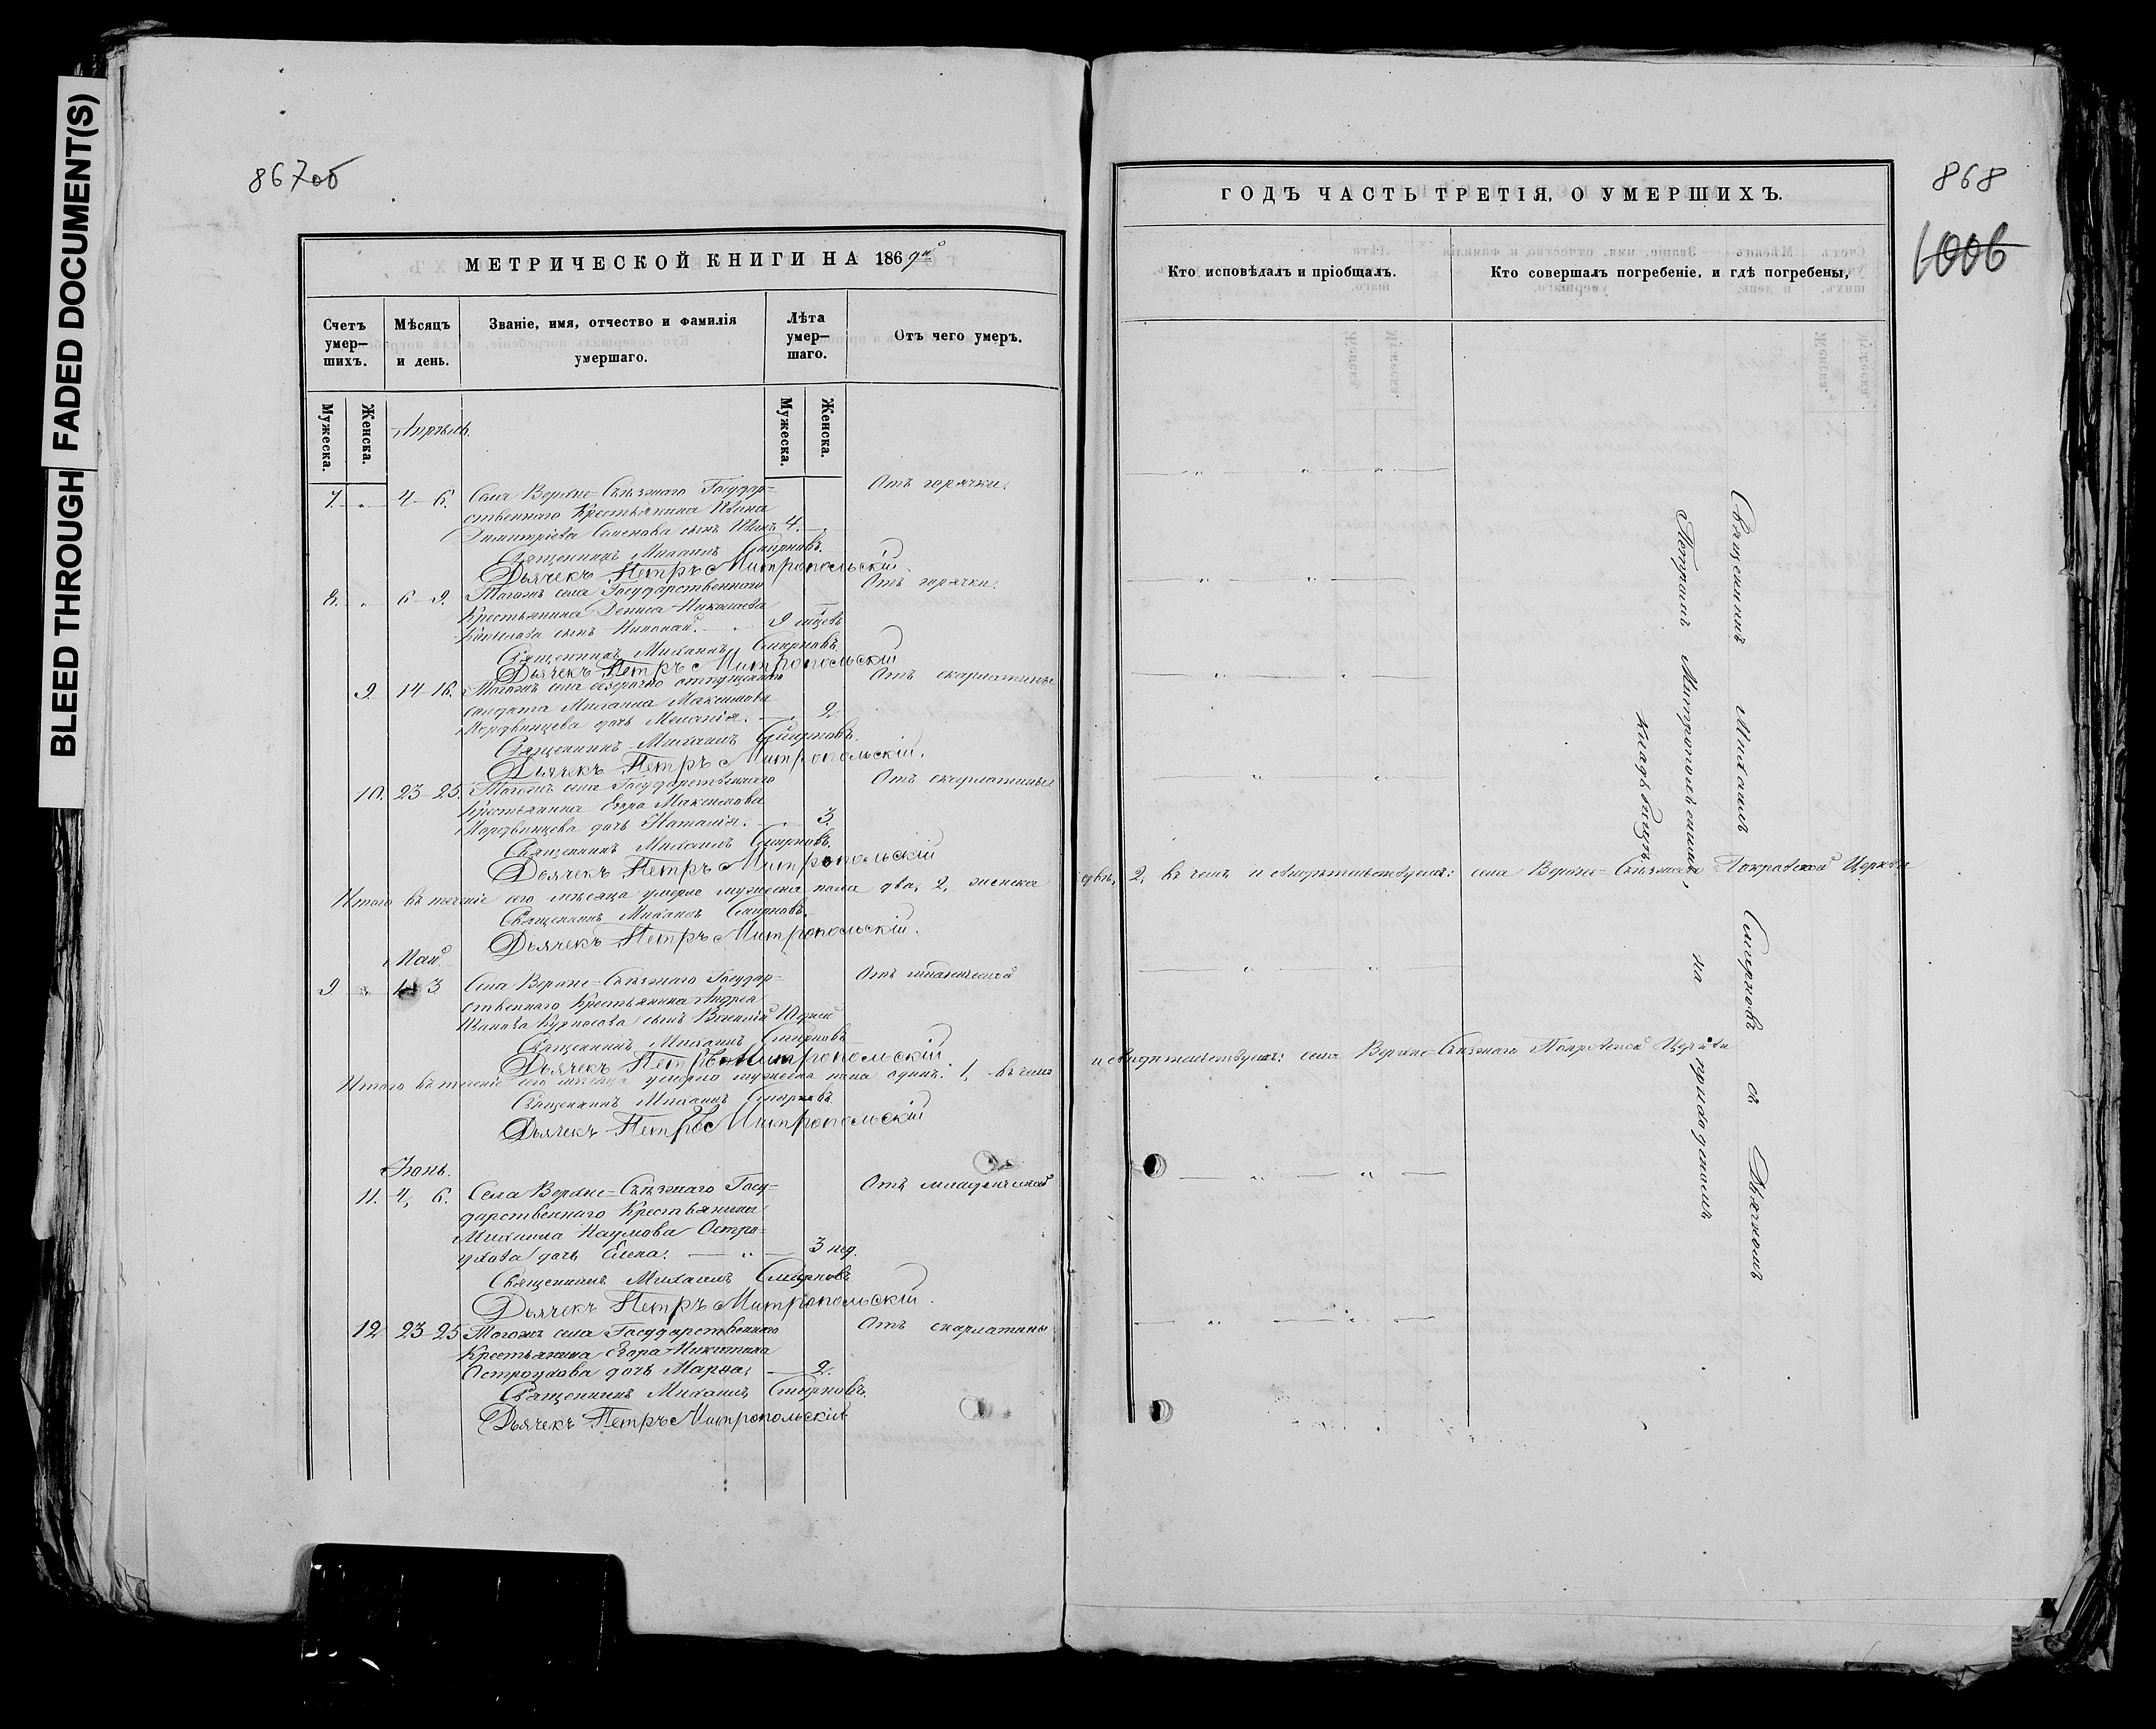 BLEED THROUGH
FADED DOCUMENT(S)
867об
МЕТРИЧЕСКОЙ КНИГИ НА 1869й
Счетъ умер–шихъ.
Мѣсяцъ и день.
Званіе, имя, отчество и фамилія умершаго.
Лѣта умер–шаго.
Отъ чего умеръ.
Мужеска.
Женска.
Мужеска.
Женска.
Апрѣль.
7. „ 4–6. Села Верхне=Съѣзжаго Государ= Отъ горячки.
ственнаго Крестьянина Ивана
Димитріева Семенова сынъ Иванъ 4.
Священникъ Михаилъ Смирновъ.
Дьячекъ Петръ Митропольскій.
8. „ 6–9. Тогожъ села Государственнаго Отъ горячки.
Крестьянина Дениса Николаева
сынъ Николай. 9 мцевъ
Священникъ Михаилъ Смирновъ.
Дьячекъ Петръ Митропольскій
9 14–16. Тогожъ села безсрочно отпущеннаго Отъ скарлатины
солдата Михаила Максимова
Мордвинцева дочь Меланія. 2.
Священникъ Михаилъ Смирновъ.
Дьячекъ Петръ Митропольскій.
10. 23–25. Тогожъ села Государственнаго Отъ скарлатины
Крестьянина Егора Максимова
Мордвинцева дочь Наталія. 3.
Священникъ Михаилъ Смирновъ.
Дьячекъ Петръ Митропольскій
Итого въ теченіе сего мѣсяца умерло мужеска пола два, 2, женска
Священникъ Михаилъ Смирновъ.
Дьячекъ Петръ Митропольскій.
Май
9 „ 3 Села Верхне=Съѣзжаго Государ= Отъ младенческой
ственнаго Крестьянина Андрея
Иванова Курносова сынъ Василій 10 дней
Священникъ Михаилъ Смирновъ
Дьячекъ Петръ Митропольскій
Итого въ теченіе сего мѣсяца умерло мужеска пола одинъ: 1, въ чемъ
Священникъ Михаилъ Смирновъ
Дьячекъ Петръ Митропольскій
Іюнь.
11. 4, 6. Села Верхне=Съѣзжаго Госу= Отъ младенческой
дарственнаго Крестьянина
Михаила Наумова Остро=
ухова дочь Елена. „ 3 нед.
Священникъ Михаилъ Смирновъ
Дьячекъ Петръ Митропольскій.
12. 23–25 Тогожъ села Государственнаго Отъ скарлатины
Крестьянина Егора Никитина
Остроухова дочь Марѳа, 2.
Священникъ Михаилъ Смирновъ.
Дьячекъ Петръ Митропольскій
868
1006
ГОДЪ ЧАСТЬ ТРЕТІЯ, О УМЕРШИХЪ.
Кто исповѣдалъ и пріобщалъ.
Кто совершалъ погребеніе, и гдѣ погребены,
Священникъ Михаилъ Смирновъ съ Дьячкомъ
Петромъ Митропольскимъ, на приходскомъ
кладбищѣ.
двѣ, 2, въ чемъ и свидѣтельствуемъ: села Верхне=Съѣзжаго Покровской Церкви
и свидѣтельствуемъ: села Верхне=Съѣзжаго Покровской Церкви